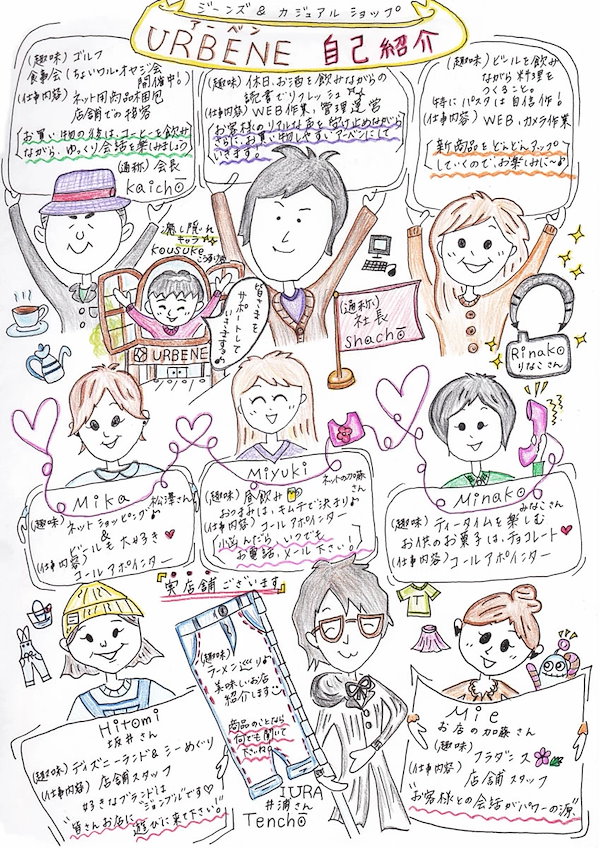 ジーンズ & カジュアル ショップ
アーベン
URBENE 自己紹介
(趣味) ゴルフ
食事会 (ちょいワル・オヤジ会
開催中!)
(仕事内容) ネット用商品梱包
店舗での接客
お買い物の後は、コーヒーを飲み
ながら、ゆっくり会話を楽しみましょう
(通称) 会長
kaichō
(趣味) 休日、お酒を飲みながらの
読書でリフレッシュ
(仕事内容) WEB作業、管理運営
お客様のリアルな声を受け止めながら
さらに、お買い物しやすいアーベンにして
いきます。
(趣味) ビールを飲み
ながら料理を
つくること。
特にパスタは自信作!
(仕事内容) WEB、カメラ作業
新商品をどんどんアップ
していくので、お楽しみに〜♪
癒し隠れ
キャラ
kousuke
こうすけ
URBENE
皆さまを
サポートして
いきます
(通称)
社長
shachō
Rinako
りなこさん
Mika
松澤さん
(趣味) ネットショッピング♪
&
ビールも大好き♥
(仕事内容)
コールアポインター
Miyuki
ネットの加藤
さん
(趣味) 昼飲み
おつまみは、キムチで決まり♪
(仕事内容) コールアポインター
「小込んだら、いつでも
お電話、メール下さい!」
Minako
みなこさん
(趣味) ティータイムを楽しむ
お供のお菓子は、チョコレート♥
(仕事内容)
コールアポインター
"実店舗ございます"
Hitomi
坂井さん
(趣味) ディズニーランド&シーめぐり
(仕事内容) 店舗スタッフ
好きなブランドは
"ジョンブル"です♡
"皆さんお店に
遊びに来て下さい!"
(趣味)
ラーメンづくり♪
美味しいお店
紹介します
商品のことなら
何でも聞いて
下さいね
IURA
井浦さん
Tenchō
Mie
お店の加藤さん
(趣味)
フラダンス
(仕事内容)
店舗スタッフ
"お客様との会話がパワーの源"